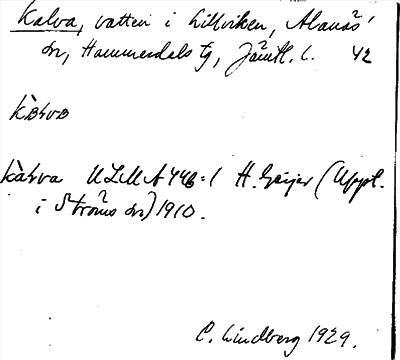 Kalva, vatten i Lillviken, Alanäs'
sn, Hammerdals tg, Jämtl. l. 42
kàlva ULMA 446:1 H. Geijer (Uppt.
i Ströms sn) 1910.
C. Lindberg 1929.